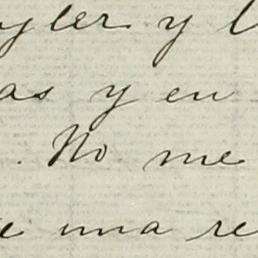 yler y
as y en
. No me
e una re